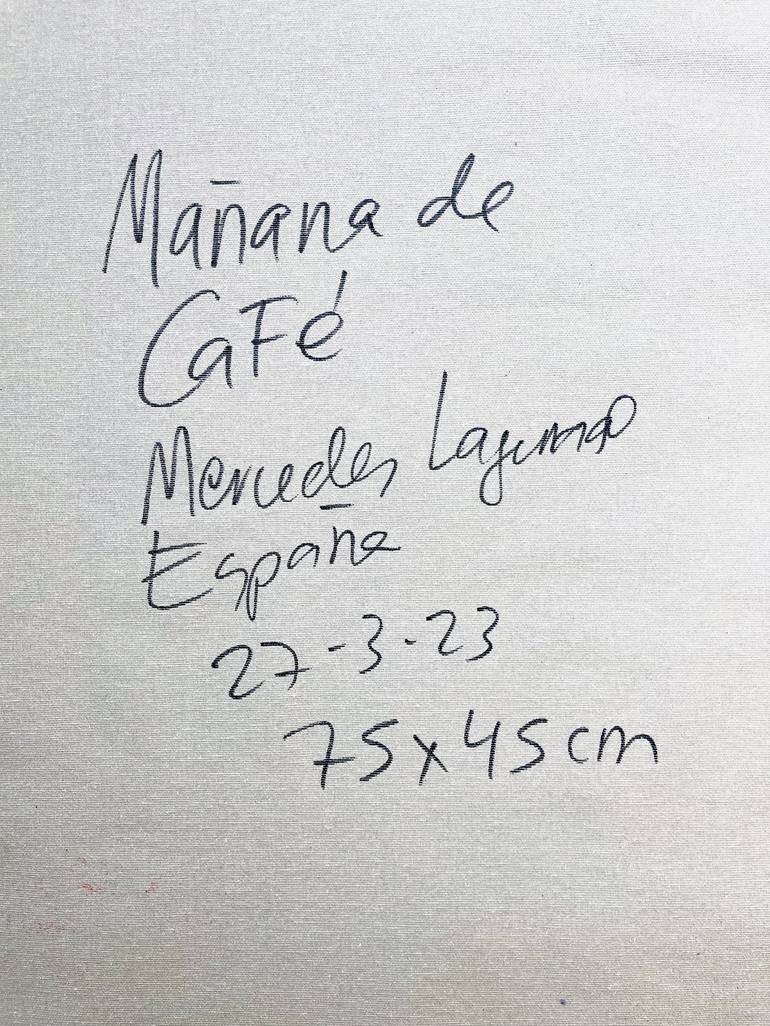 Mañana de
CaFé
Mercedes Lagunas
España
27-3-23
75x45cm